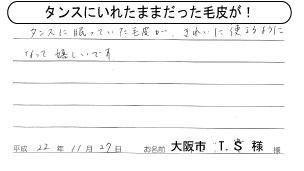 タンスにいれたままだった毛皮が!
タンスに眠っていた毛皮が、きれいに使えるように
なって嬉しいです
平成 22 年 11 月 27 日 お名前 大阪市 T.S 様 様